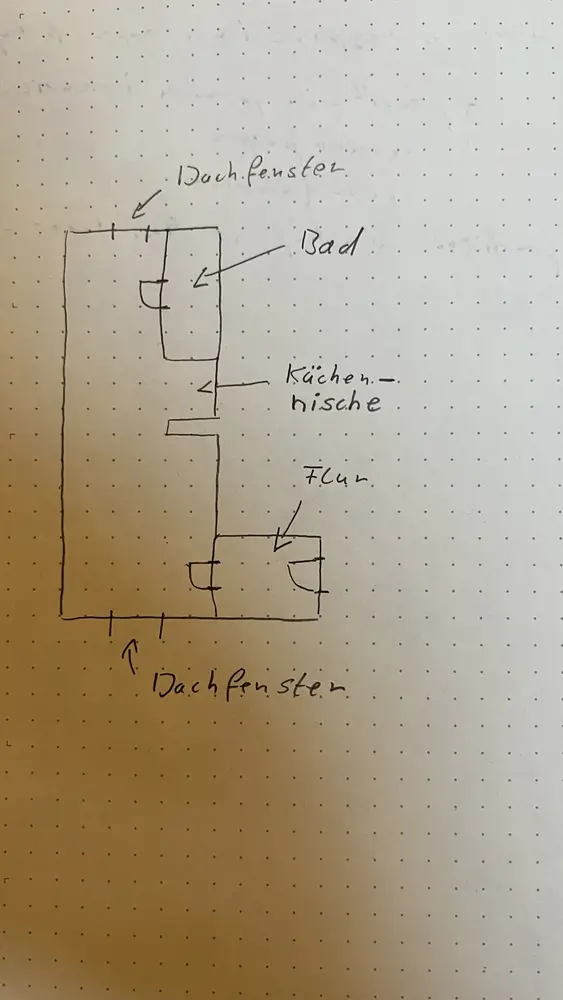 Dachfenster
Bad
Küchen-
nische
Flur
Dachfenster